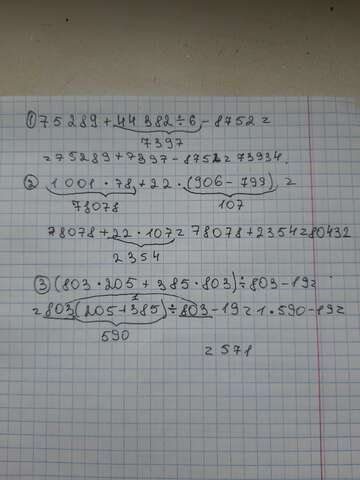 ① 75289 + 44382 ÷ 6 - 8752 =
7397
= 75289 + 7397 - 8752 = 73934.
② 1001 · 78 + 22 · (906 - 799) =
78078 107
78078 + 22 · 107 = 78078 + 2354 = 80432
2354
③ (803 · 205 + 385 · 803) ÷ 803 - 19 =
1
= 803 (205 + 385) ÷ 803 - 19 = 1 · 590 - 19 =
590
= 571